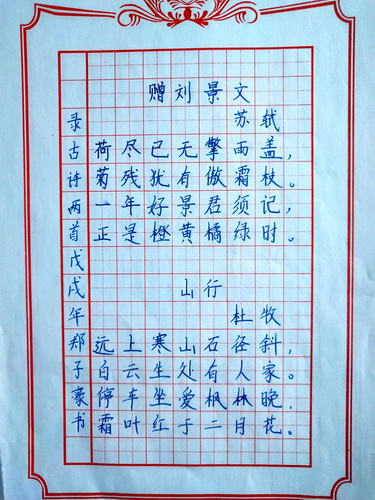 赠刘景文
苏轼
荷尽已无擎雨盖，
菊残犹有傲霜枝。
一年好景君须记，
正是橙黄橘绿时。
山行
杜牧
远上寒山石径斜，
白云生处有人家。
停车坐爱枫林晚，
霜叶红于二月花。
录古诗两首戊戌年郑子豪书